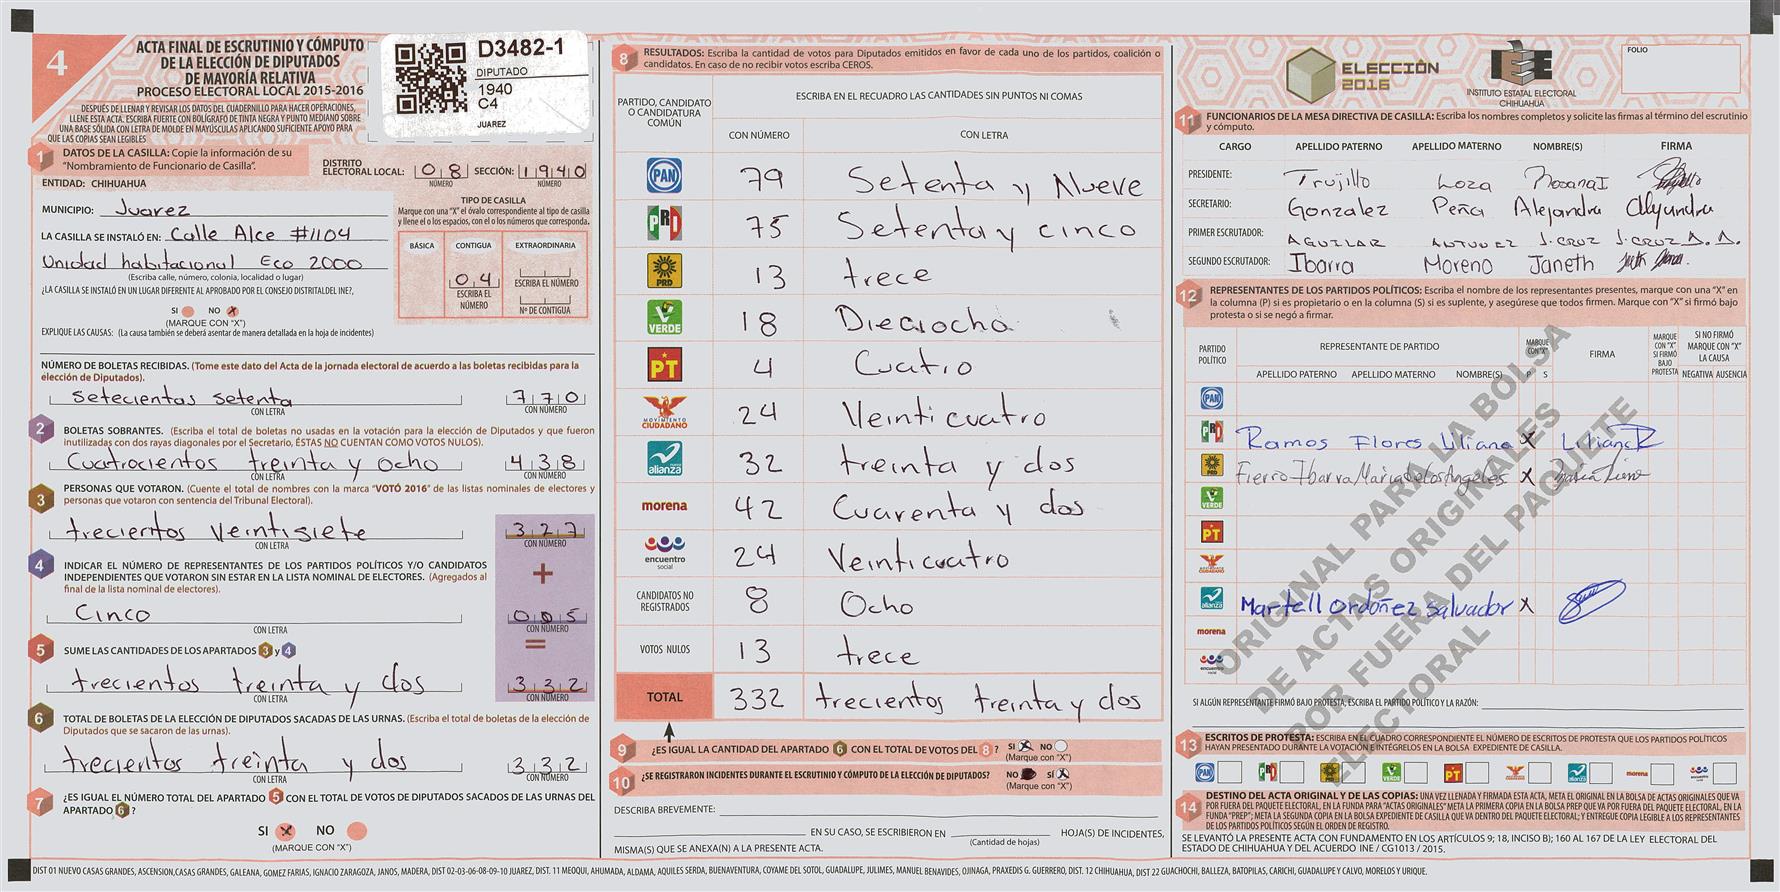 4
ACTA FINAL DE ESCRUTINIO Y CÓMPUTO
DE LA ELECCIÓN DE DIPUTADOS
DE MAYORÍA RELATIVA
PROCESO ELECTORAL LOCAL 2015-2016
DESPUÉS DE LLENAR Y REVISAR LOS DATOS DEL CUADERNILLO PARA HACER OPERACIONES,
LLENE ESTA ACTA. ESCRIBA FUERTE CON BOLÍGRAFO DE TINTA NEGRA Y PUNTO MEDIANO SOBRE
UNA BASE SÓLIDA CON LETRA DE MOLDE EN MAYÚSCULAS APLICANDO SUFICIENTE APOYO PARA
QUE LAS COPIAS SEAN LEGIBLES
D3482-1
DIPUTADO
1940
C4
JUAREZ
1 DATOS DE LA CASILLA: Copie la información de su
"Nombramiento de Funcionario de Casilla".
DISTRITO
ELECTORAL LOCAL: 08 SECCIÓN: 1940
NÚMERO NÚMERO
ENTIDAD: CHIHUAHUA
MUNICIPIO: Juarez
LA CASILLA SE INSTALÓ EN: Calle Alce #1104
Unidad habitacional Eco 2000
(Escribir calle, número, colonia, localidad o lugar)
¿LA CASILLA SE INSTALÓ EN UN LUGAR DIFERENTE AL APROBADO POR EL CONSEJO DISTRITAL DEL INE?,
SI NO X
(MARQUE CON "X")
EXPLIQUE LAS CAUSAS: (La causa también se deberá asentar de manera detallada en la hoja de incidentes)
TIPO DE CASILLA
Marque con una "X" el óvalo correspondiente al tipo de casilla
y llene el o los espacios, con el o los números que corresponda.
BÁSICA CONTIGUA EXTRAORDINARIA
04
ESCRIBA EL NÚMERO
ESCRIBA EL NÚMERO
Nº DE CONTIGUA
NÚMERO DE BOLETAS RECIBIDAS. (Tome este dato del Acta de la jornada electoral de acuerdo a las boletas recibidas para la
elección de Diputados).
Setecientas setenta 770
CON LETRA CON NÚMERO
2 BOLETAS SOBRANTES. (Escriba el total de boletas no usadas en la votación para la elección de Diputados y que fueron
inutilizadas con dos rayas diagonales por el Secretario, ÉSTAS NO CUENTAN COMO VOTOS NULOS).
Cuatrocientos treinta y Ocho 438
CON LETRA CON NÚMERO
3 PERSONAS QUE VOTARON. (Cuente el total de nombres con la marca "VOTÓ 2016" de las listas nominales de electores y
personas que votaron con sentencia del Tribunal Electoral).
trecientos Veintisiete 327
CON LETRA CON NÚMERO
4 INDICAR EL NÚMERO DE REPRESENTANTES DE LOS PARTIDOS POLÍTICOS Y/O CANDIDATOS
INDEPENDIENTES QUE VOTARON SIN ESTAR EN LA LISTA NOMINAL DE ELECTORES. (Agregados al
final de la lista nominal de electores).
+
Cinco 005
CON LETRA CON NÚMERO
5 SUME LAS CANTIDADES DE LOS APARTADOS 3 y 4
=
trecientos treinta y dos 332
CON LETRA CON NÚMERO
6 TOTAL DE BOLETAS DE LA ELECCIÓN DE DIPUTADOS SACADAS DE LAS URNAS. (Escriba el total de boletas de la elección de
Diputados que se sacaron de las urnas).
trecientos treinta y dos 332
CON LETRA CON NÚMERO
7 ¿ES IGUAL EL NÚMERO TOTAL DEL APARTADO 5 CON EL TOTAL DE VOTOS DE DIPUTADOS SACADOS DE LAS URNAS DEL
APARTADO 6?
SI X NO
(MARQUE CON "X")
8 RESULTADOS: Escriba la cantidad de votos para Diputados emitidos en favor de cada uno de los partidos, coalición o
candidatos. En caso de no recibir votos escriba CEROS.
PARTIDO, CANDIDATO
O CANDIDATURA
COMÚN
ESCRIBA EN EL RECUADRO LAS CANTIDADES SIN PUNTOS NI COMAS
CON NÚMERO CON LETRA
PAN 79 Setenta y Nueve
PRI 75 Setenta y cinco
PRD 13 trece
VERDE 18 Dieciocho
PT 4 Cuatro
MOVIMIENTO CIUDADANO 24 Veinticuatro
alianza 32 treinta y dos
morena 42 Cuarenta y dos
encuentro social 24 Veinticuatro
CANDIDATOS NO REGISTRADOS 8 Ocho
VOTOS NULOS 13 trece
TOTAL 332 trecientos treinta y dos
9 ¿ES IGUAL LA CANTIDAD DEL APARTADO 6 CON EL TOTAL DE VOTOS DEL 8? SI X NO
(Marque con "X")
10 ¿SE REGISTRARON INCIDENTES DURANTE EL ESCRUTINIO Y CÓMPUTO DE LA ELECCIÓN DE DIPUTADOS? NO SÍ X
(Marque con "X")
DESCRIBA BREVEMENTE:
EN SU CASO, SE ESCRIBIERON EN HOJA(S) DE INCIDENTES,
(Cantidad de hojas)
MISMA(S) QUE SE ANEXA(N) A LA PRESENTE ACTA.
ELECCIÓN
2016
IEE
INSTITUTO ESTATAL ELECTORAL
CHIHUAHUA
FOLIO
11 FUNCIONARIOS DE LA MESA DIRECTIVA DE CASILLA: Escriba los nombres completos y solicite las firmas al término del escrutinio
y cómputo.
CARGO APELLIDO PATERNO APELLIDO MATERNO NOMBRE(S) FIRMA
PRESIDENTE: Trujillo Loza
SECRETARIO: Gonzalez Peña Alejandra Alejandra
PRIMER ESCRUTADOR: AGUILAR J. CRUZ J. CRUZ A. A.
SEGUNDO ESCRUTADOR: Ibarra Moreno Janeth
12 REPRESENTANTES DE LOS PARTIDOS POLÍTICOS: Escriba el nombre de los representantes presentes, marque con una "X" en
la columna (P) si es propietario o en la columna (S) si es suplente, y asegúrese que todos firmen. Marque con "X" si firmó bajo
protesta o si se negó a firmar.
PARTIDO POLÍTICO REPRESENTANTE DE PARTIDO MARQUE CON "X" FIRMA MARQUE CON "X" SI FIRMÓ BAJO PROTESTA SI NO FIRMÓ MARQUE CON "X" LA CAUSA
APELLIDO PATERNO APELLIDO MATERNO NOMBRE(S) P S NEGATIVA AUSENCIA
PAN
PRI Ramos Flores Liliana X Liliana R
PRD Fierro Ibarra Maria de los Angeles X
VERDE
PT
MOVIMIENTO CIUDADANO
alianza Martell Ordoñez Salvador X
morena
encuentro social
ORIGINAL PARA LA BOLSA
DE ACTAS ORIGINALES
POR FUERA DEL PAQUETE
ELECTORAL
SI ALGÚN REPRESENTANTE FIRMÓ BAJO PROTESTA, ESCRIBA EL PARTIDO POLÍTICO Y LA RAZÓN:
13 ESCRITOS DE PROTESTA: ESCRIBA EN EL CUADRO CORRESPONDIENTE EL NÚMERO DE ESCRITOS DE PROTESTA QUE LOS PARTIDOS POLÍTICOS
HAYAN PRESENTADO DURANTE LA VOTACIÓN E INTÉGRELOS EN LA BOLSA EXPEDIENTE DE CASILLA.
PAN PRI PRD VERDE PT alianza morena
14 DESTINO DEL ACTA ORIGINAL Y DE LAS COPIAS: UNA VEZ LLENADA Y FIRMADA ESTA ACTA, META EL ORIGINAL EN LA BOLSA DE ACTAS ORIGINALES QUE VA
POR FUERA DEL PAQUETE ELECTORAL, EN LA FUNDA PARA "ACTAS ORIGINALES" META LA PRIMERA COPIA EN LA BOLSA PREP QUE VA POR FUERA DEL PAQUETE ELECTORAL, EN LA
FUNDA "PREP"; META LA SEGUNDA COPIA EN LA BOLSA EXPEDIENTE DE CASILLA QUE VA DENTRO DEL PAQUETE ELECTORAL; Y ENTREGUE COPIA LEGIBLE A LOS REPRESENTANTES
DE LOS PARTIDOS POLÍTICOS SEGÚN EL ORDEN DE REGISTRO.
SE LEVANTÓ LA PRESENTE ACTA CON FUNDAMENTO EN LOS ARTÍCULOS 9; 18, INCISO B); 160 AL 167 DE LA LEY ELECTORAL DEL
ESTADO DE CHIHUAHUA Y DEL ACUERDO INE / CG1013 / 2015.
DIST 01 NUEVO CASAS GRANDES, ASCENSION,CASAS GRANDES, GALEANA, GOMEZ FARIAS, IGNACIO ZARAGOZA, JANOS, MADERA, DIST 02-03-06-08-09-10 JUAREZ, DIST. 11 MEOQUI, AHUMADA, ALDAMA, AQUILES SERDA, BUENAVENTURA, COYAME DEL SOTOL, GUADALUPE, JULIMES, MANUEL BENAVIDES, OJINAGA, PRAXEDIS G. GUERRERO, DIST. 12 CHIHUAHUA, DIST 22 GUACHOCHI, BALLEZA, BATOPILAS, CARICHI, GUADALUPE Y CALVO, MORELOS Y URIQUE.